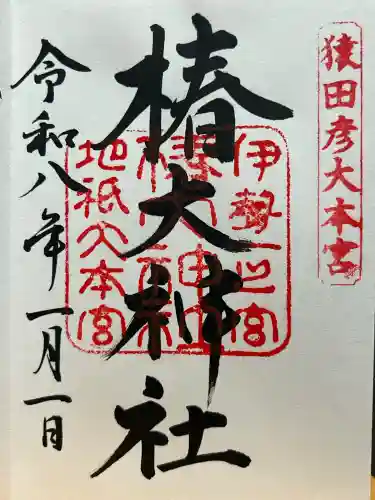 猿田彦大本宮
椿大神社
伊勢一之宮
椿大神社
地祇大本宮
令和八年一月一日